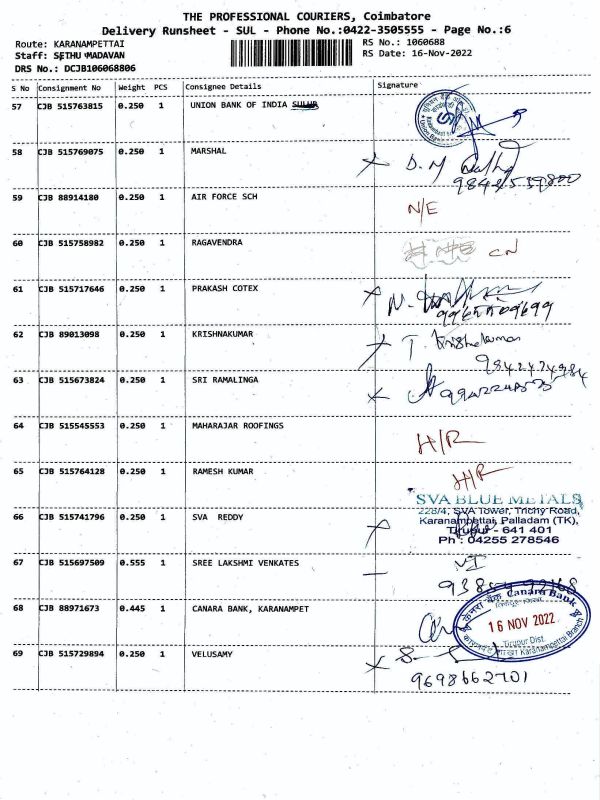 THE PROFESSIONAL COURIERS, Coimbatore
Delivery Runsheet - SUL - Phone No.:0422-3505555 - Page No.:6
Route: KARANAMPETTAI
RS No.: 1060688
Staff: SETHU MADAVAN
RS Date: 16-Nov-2022
DRS No.: DCJB106068806
S No Consignment No Weight PCS Consignee Details Signature
57 CJB 515763815 0.250 1 UNION BANK OF INDIA SULUR
58 CJB 515769075 0.250 1 MARSHAL
59 CJB 88914180 0.250 1 AIR FORCE SCH N/E
60 CJB 515758982 0.250 1 RAGAVENDRA CN
61 CJB 515717646 0.250 1 PRAKASH COTEX
62 CJB 89013098 0.250 1 KRISHNAKUMAR T. Krishnakumar
63 CJB 515673824 0.250 1 SRI RAMALINGA
64 CJB 515545553 1 MAHARAJAR ROOFINGS H/R
0.250
65 CJB 515764128 0.250 1 RAMESH KUMAR H/R
SVA BLUE METALS
228/4, SVA Tower, Trichy Road,
66 CJB 515741796 0.250 1 SVA REDDY Karanampettai, Palladam (TK),
Tirupur - 641 401
Ph : 04255 278546
67 CJB 515697509 0.555 1 SREE LAKSHMI VENKATES
68 CJB 88971673 0.445 1 CANARA BANK, KARANAMPET
केनरा बैंक Canara Bank
16 NOV 2022
Tirupur Dist.
Karanampettai Branch
69 CJB 515729894 0.250 1 VELUSAMY
9698662701